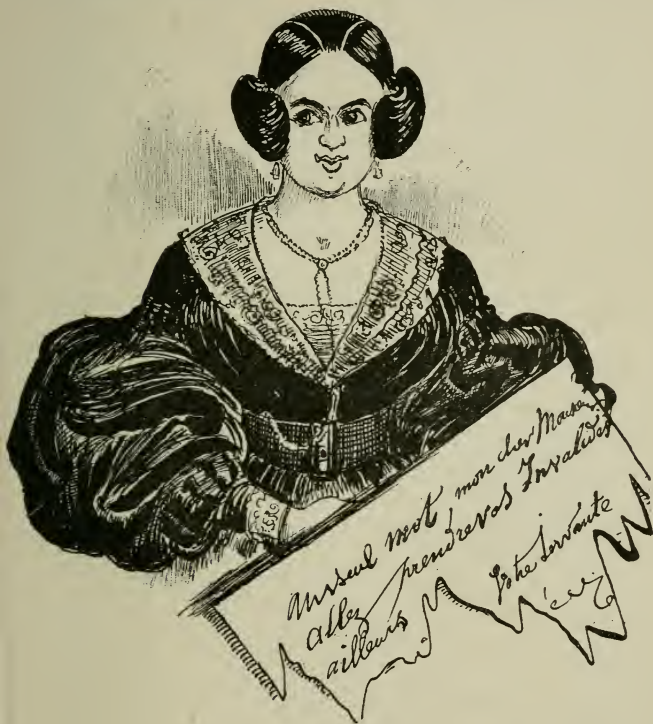 un seul mot, mon cher Monsieur
allez prendre vos Invalides
ailleurs
Votre servante